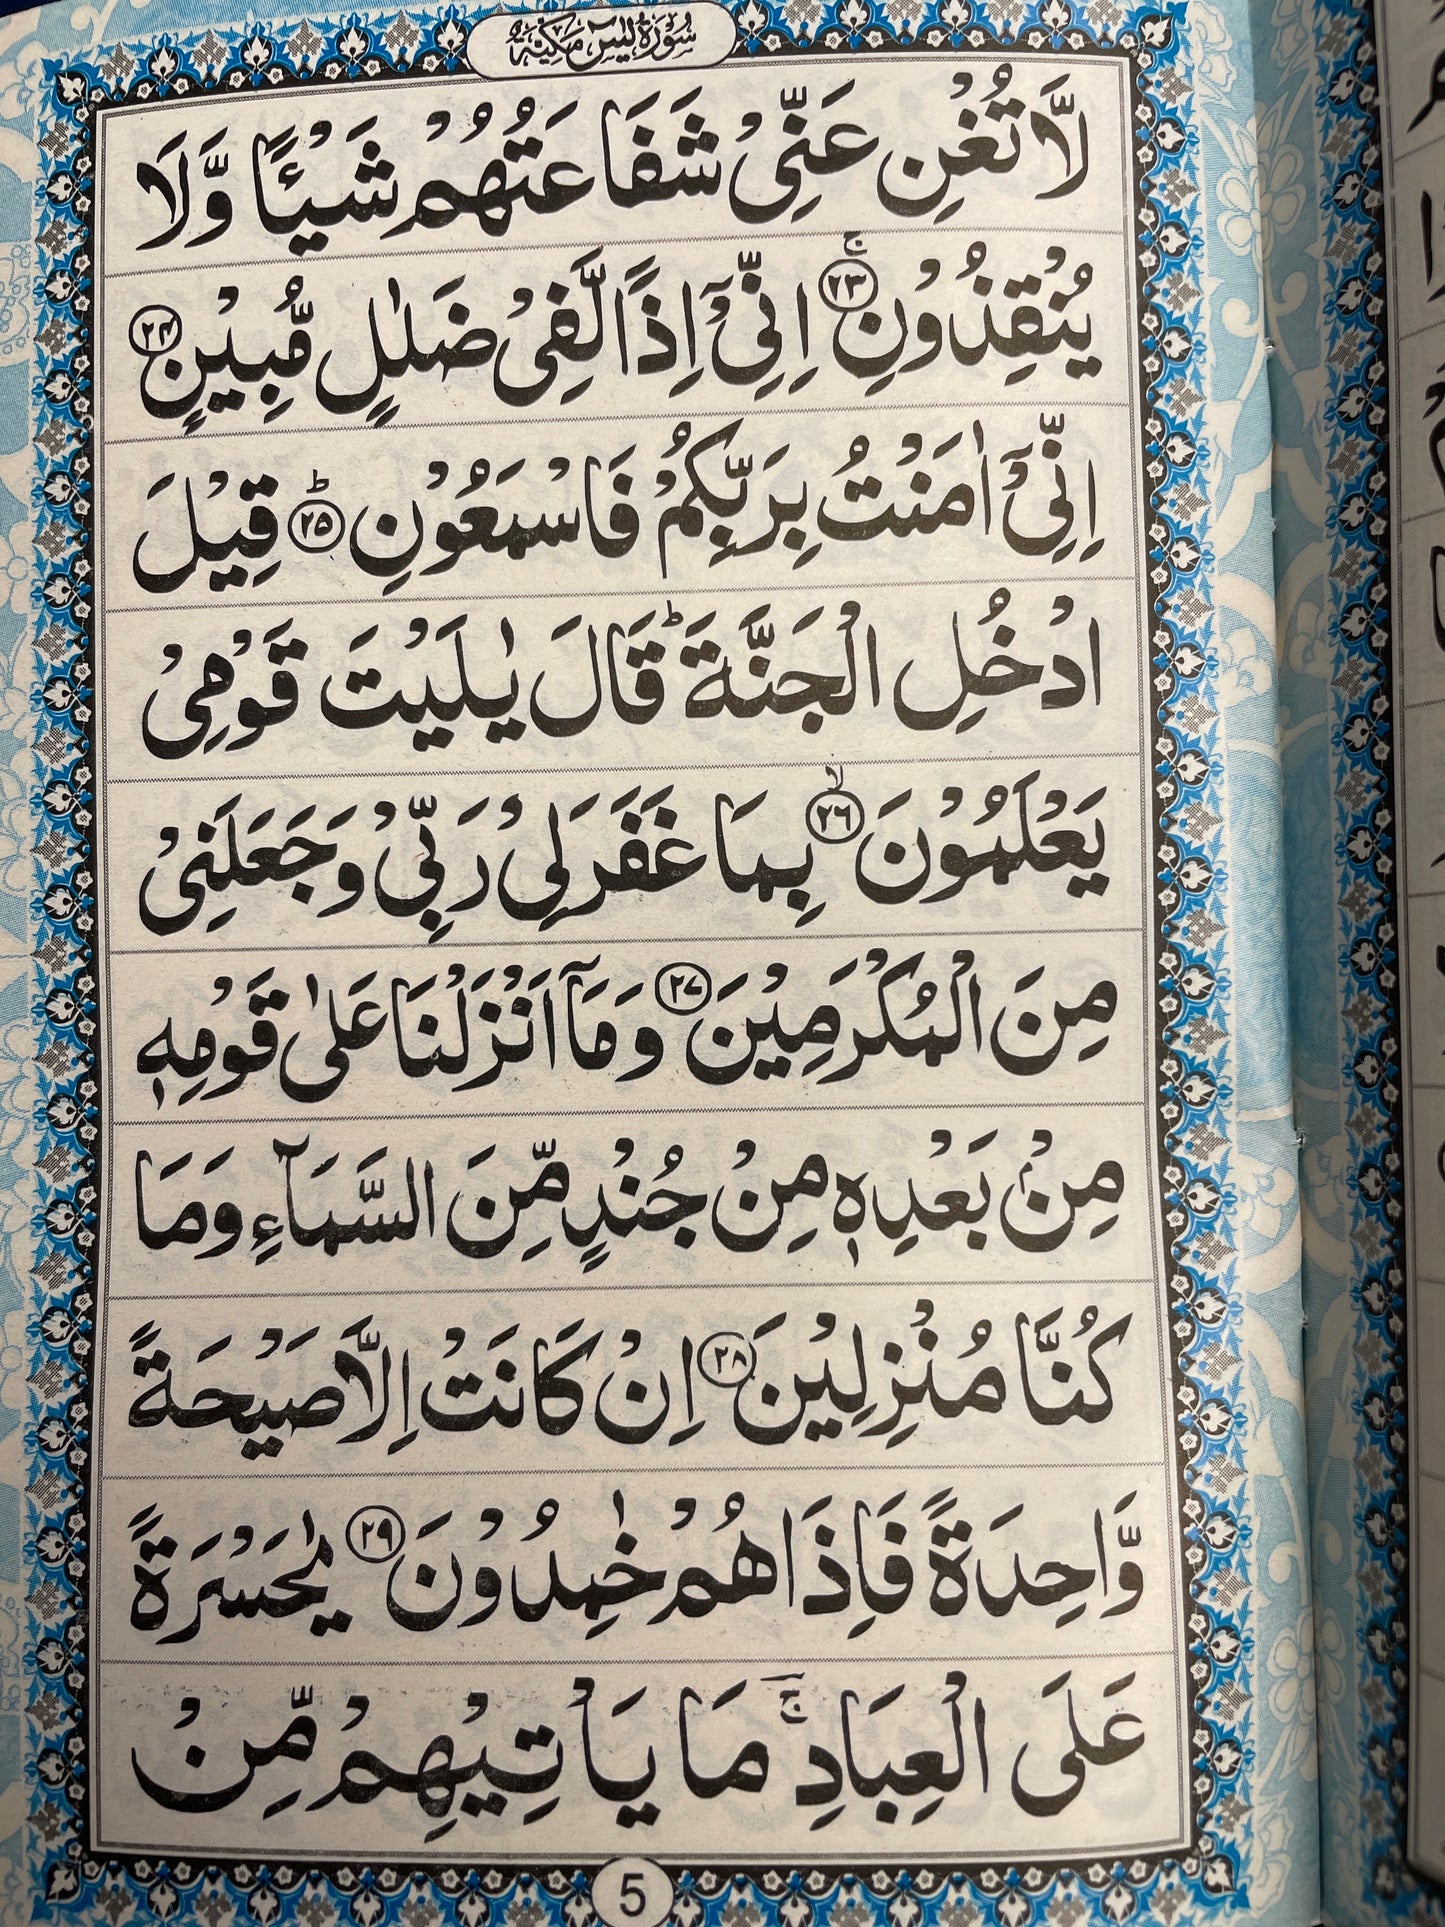 سُوْرَةُ يٰسٓ مَكِّيَّةٌ
لَّا تُغْنِ عَنِّيْ شَفَاعَتُهُمْ شَيْـًٔا وَّلَا
يُنْقِذُوْنِ ۚ﴿۲۳﴾ اِنِّيْۤ اِذًا لَّفِيْ ضَلٰلٍ مُّبِيْنٍ ﴿۲۴﴾
اِنِّيْۤ اٰمَنْتُ بِرَبِّكُمْ فَاسْمَعُوْنِ ؕ﴿۲۵﴾ قِيْلَ
ادْخُلِ الْجَنَّةَ ؕ قَالَ يٰلَيْتَ قَوْمِيْ
يَعْلَمُوْنَ ۙ﴿۲۶﴾ بِمَا غَفَرَ لِيْ رَبِّيْ وَجَعَلَنِيْ
مِنَ الْمُكْرَمِيْنَ ﴿۲۷﴾ وَمَاۤ اَنْزَلْنَا عَلٰى قَوْمِهٖ
مِنْۢ بَعْدِهٖ مِنْ جُنْدٍ مِّنَ السَّمَآءِ وَمَا
كُنَّا مُنْزِلِيْنَ ﴿۲۸﴾ اِنْ كَانَتْ اِلَّا صَيْحَةً
وَّاحِدَةً فَاِذَا هُمْ خٰمِدُوْنَ ﴿۲۹﴾ يٰحَسْرَةً
عَلَى الْعِبَادِ ۚ مَا يَاْتِيْهِمْ مِّنْ
5